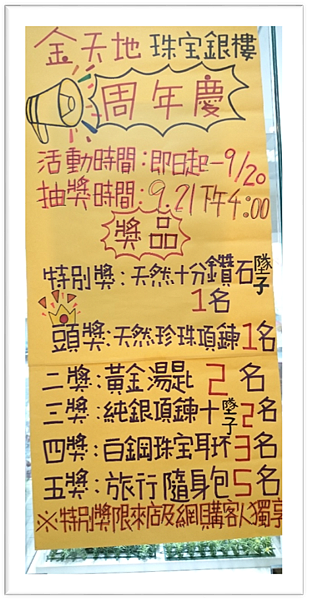 金天地 珠宝銀樓
周年慶
活動時間：即日起-9/20
抽獎時間：9.21下午4:00
獎品
特別獎：天然十分鑽石墜子
1名
頭獎：天然珍珠項鍊1名
二獎：黃金湯匙 2名
三獎：純銀項鍊十墜子2名
四獎：白鋼珠宝耳环3名
五獎：旅行隨身包5名
※特別獎限來店及網購客人獨享